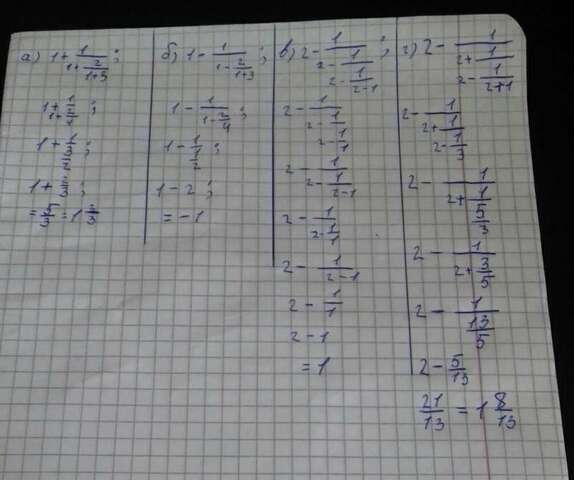 а) 1+1/(1+2/(1+3));
1+1/(1+2/4);
1+1/(3/2);
1+2/3;
=5/3=1 2/3
б) 1-1/(1-2/(1+3));
1-1/(1-2/4);
1-1/(1/2);
1-2;
=-1
в) 2-1/(2-1/(2-1/(2-1)));
2-1/(2-1/(2-1/1))
2-1/(2-1/(2-1))
2-1/(2-1/1)
2-1/(2-1)
2-1/1
2-1
=1
г) 2-1/(2+1/(2-1/(2+1)))
2-1/(2+1/(2-1/3))
2-1/(2+1/(5/3))
2-1/(2+3/5)
2-1/(13/5)
2-5/13
21/13=1 8/13